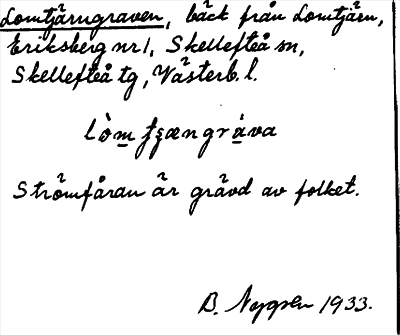 Lomtjärngraven, bäck från Lomtjärn,
Eriksberg nr 1, Skellefteå sn,
Skellefteå tg, Västerb. l.
lòm̲ ʈʂængrá̲va
Strömfåran är grävd av folket.
B. 1933.